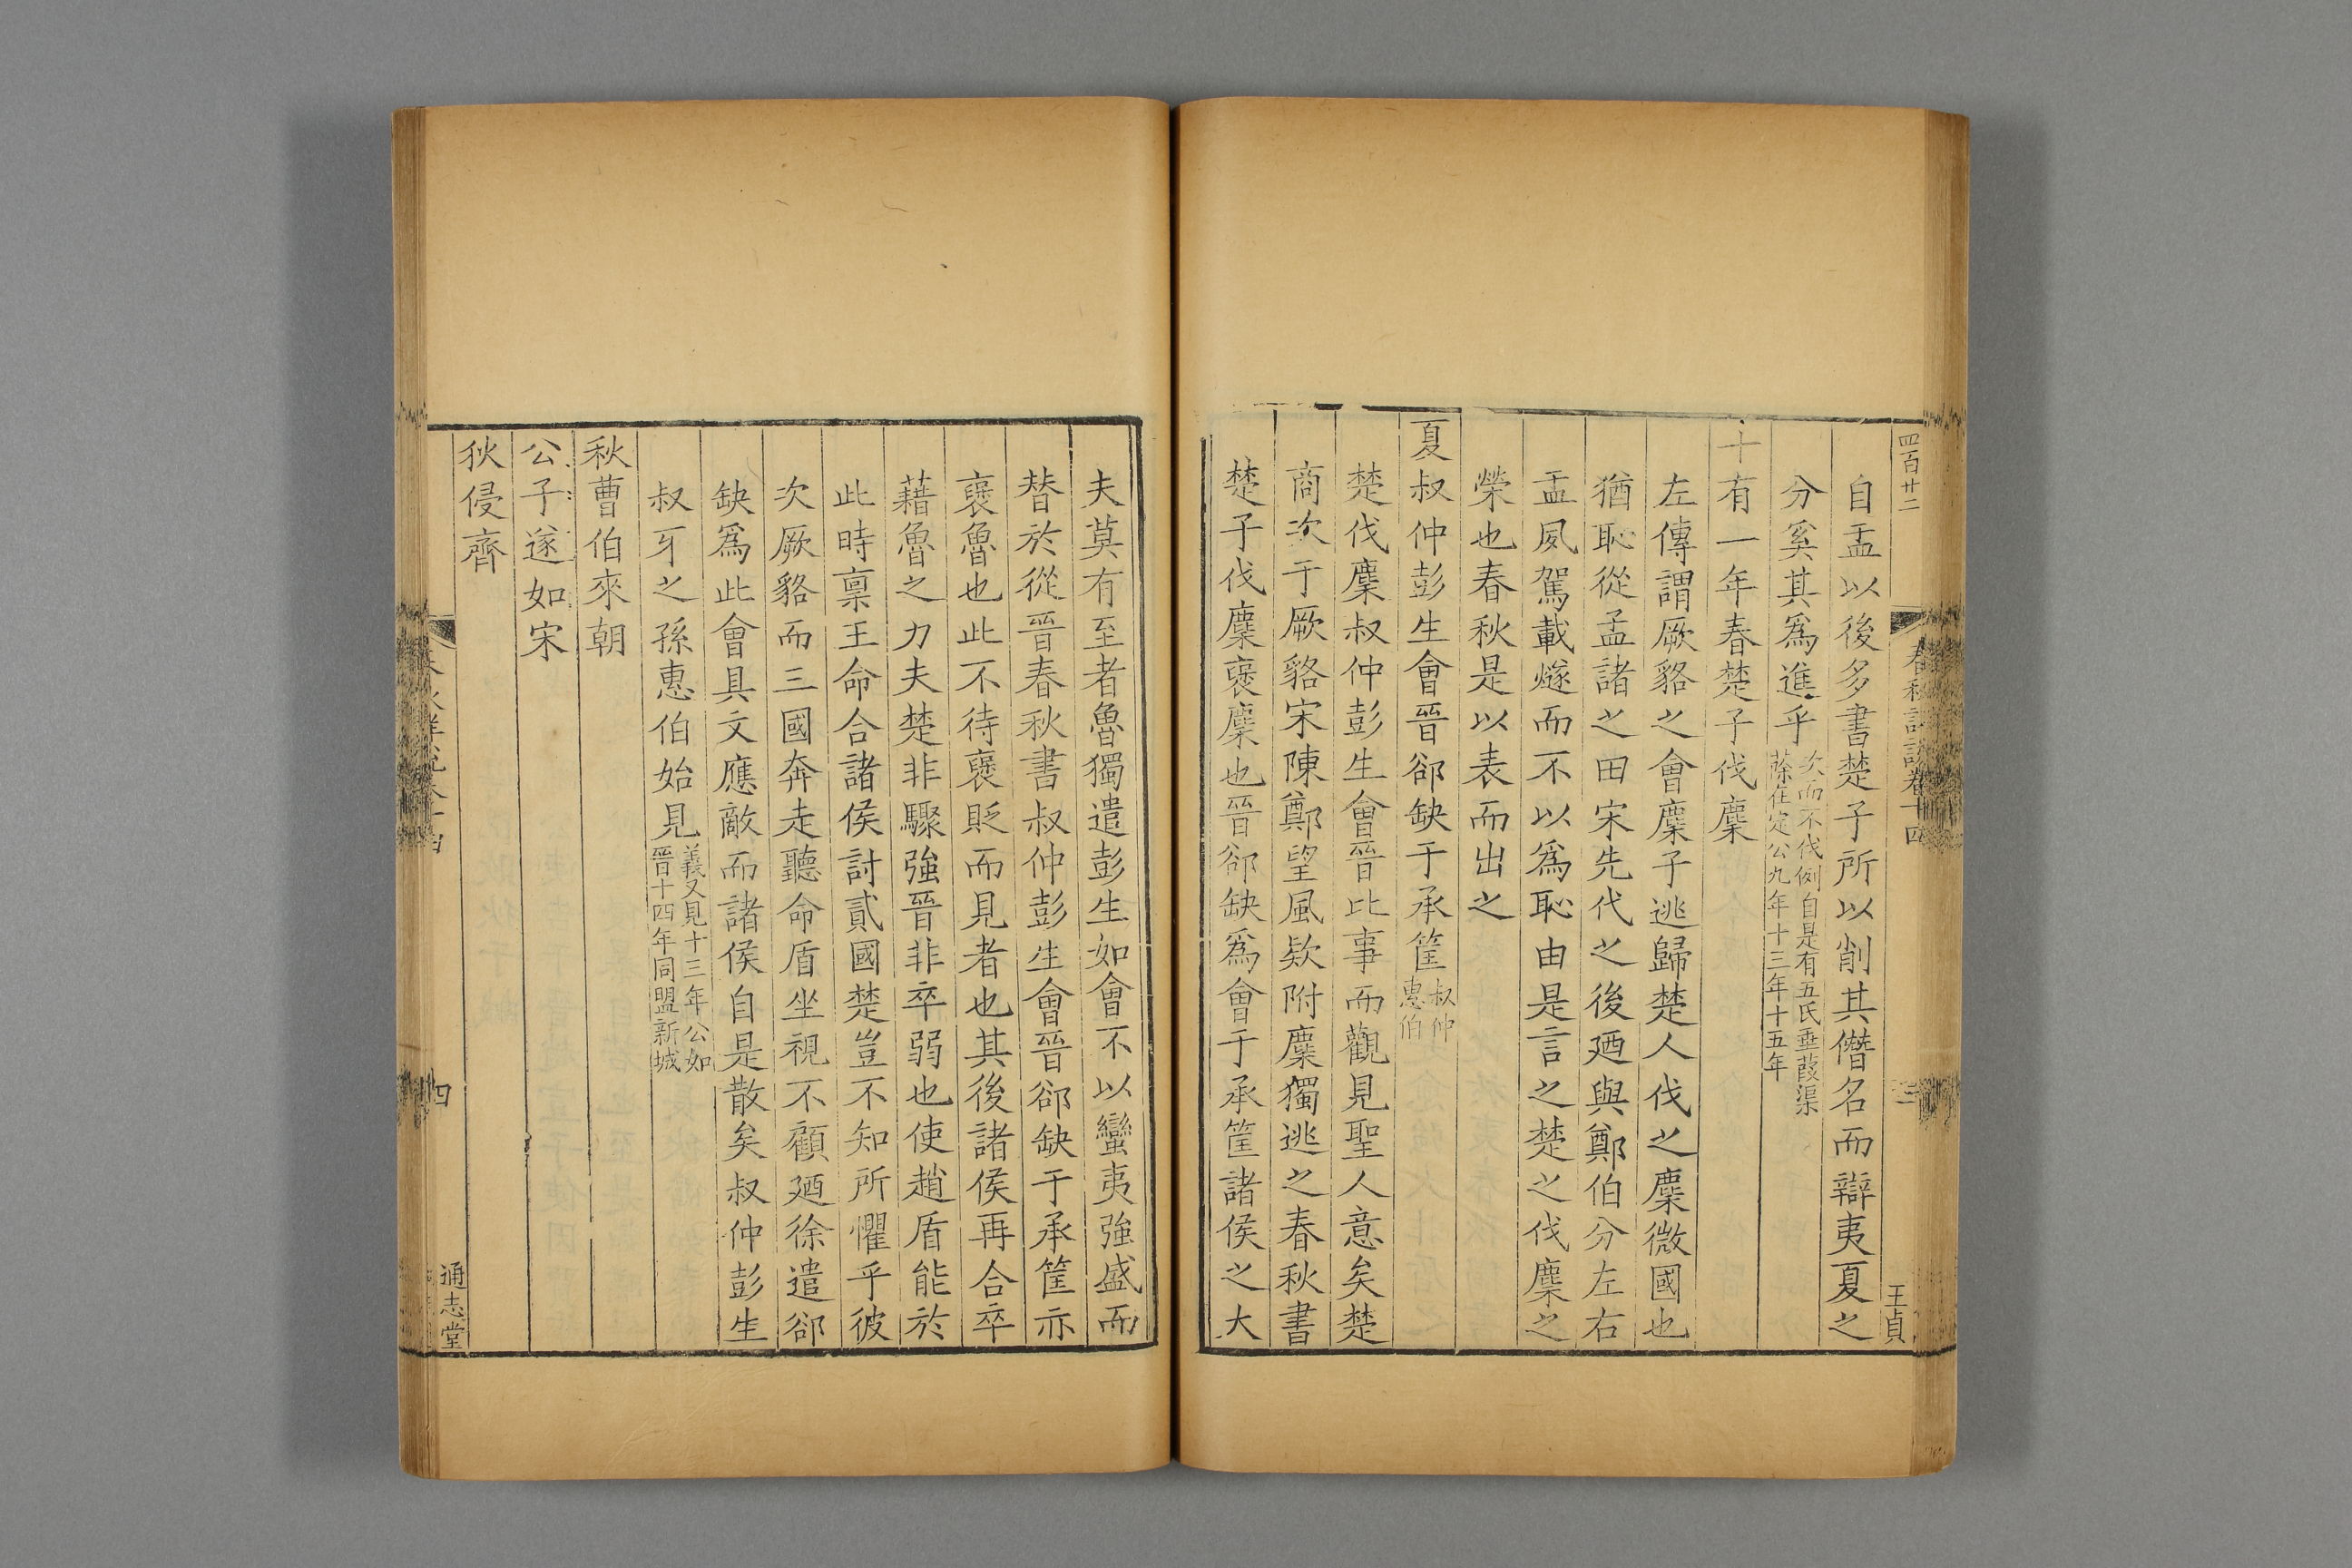 四百廿二
春秋詳說卷十四
三
王貞
自盂以後多書楚子所以削其僭名而辯夷夏之
分奚其爲進乎次而不伐例自是有五氏垂葭渠
蒢在定公九年十三年十五年
十有一年春楚子伐麇
左傳謂厥貉之會麇子逃歸楚人伐之麇微國也
猶恥從孟諸之田宋先代之後廼與鄭伯分左右
盂夙駕載燧而不以爲恥由是言之楚之伐麇之
榮也春秋是以表而出之
夏叔仲彭生會晉郤缺于承筐叔仲
惠伯
楚伐麇叔仲彭生會晉比事而觀見聖人意矣楚
商次于厥貉宋陳鄭望風欵附麇獨逃之春秋書
楚子伐麇褒麇也晉郤缺爲會于承筐諸侯之大
夫莫有至者魯獨遣彭生如會不以蠻夷強盛而
替於從晉春秋書叔仲彭生會晉郤缺于承筐亦
褒魯也此不待褒貶而見者也其後諸侯再合卒
藉魯之力夫楚非驟強晉非卒弱也使趙盾能於
此時稟王命合諸侯討貳國楚豈不知所懼乎彼
次厥貉而三國奔走聽命盾坐視不顧廼徐遣郤
缺爲此會具文應敵而諸侯自是散矣叔仲彭生
叔牙之孫惠伯始見義又見十三年公如
晉十四年同盟新城
秋曹伯來朝
公子遂如宋
狄侵齊
春秋詳說卷十四
四
通志堂